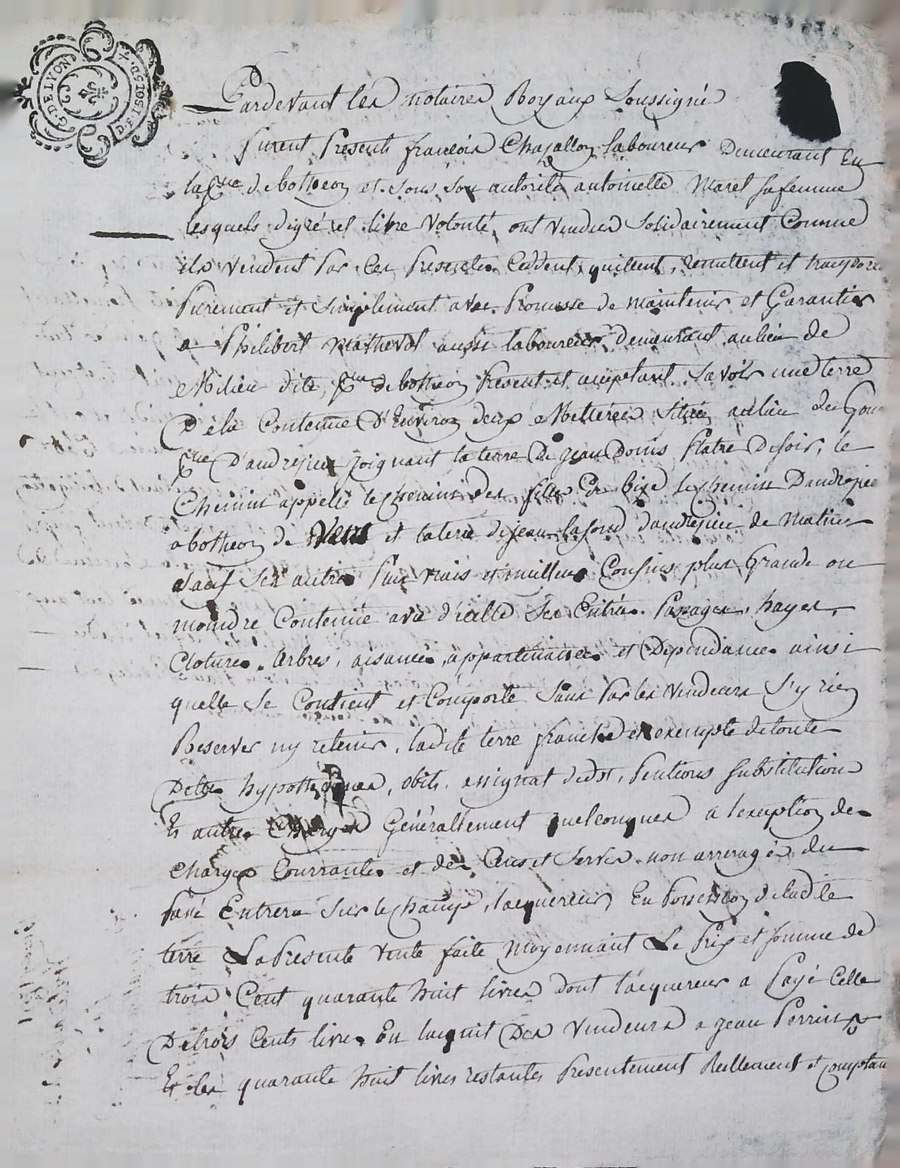 G. DE LYON
DEUX SOLS. 4. D.
Pardevant les notaires Royaux Soussigné
furent Presents francois Chazallon laboureur Demeurant En
la psse de botheon et sous son autorité antoinette Maret sa femme
lesquels de gré et libre volonté, ont vendus Solidairement Comme
ils vendent Par Ces Presentes Ceddent, quittent, remettent et transporte
Purement et Simplement avec Promesse de maintenir et Garantir
a Philibert Mathevot aussi laboureur demeurant au lieu de
Milieu dite psse de botheon Present et acceptant Savoir une terre
De la Contenue D'Environ deux Metterées Située au lieu du
psse D'andrejeu joignant la terre De jean Platre de soir, le
Chemin appellé le chemin des De bize le chemin Dandrejeu
a botheon de vent et la terre de jean lafond d'andrejeu de Matin
Sauf Ses autres Plus vrais et meilleurs Confins plus Grande ou
moindre Contenue avec d'icelle Ses Entrées Passages, hayes,
Clotures, Arbres, aisances, appartenances et Dependances ainsi
quelle Se Contient et Comporte Sans Par les vendeurs S'y rien
Reserver ny retenir, ladite terre franche et exempte de toute
Dettes hypotheques, obits, assignat de dot, Pentions Substitution
Et autres Charges Générallement quelconques a l'exception des
charges Courrantes et des Cens et Servis non arreragés du
Passé Entrera Sur le Champ, l'acquereur, En Possession de ladite
terre La Presente vente faite moyennant Le Prix et Somme de
trois Cent quarante huit livres dont l'acquereur a Payé Celle
De trois Cents livres En l'acquit Des vendeurs a jean Perrin
Et les quarante huit livres restantes Presentement Reellement et comptant